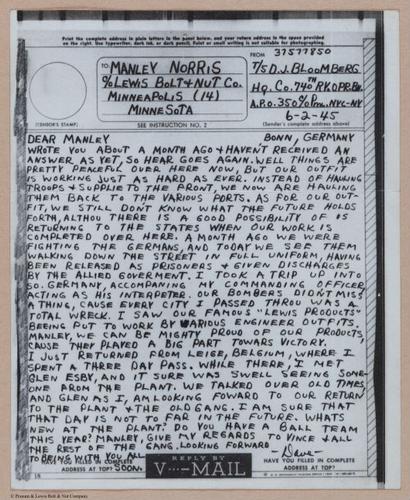 Print the complete address in plain letters in the panel below, and your return address in the space provided
on the right. Use typewriter, dark ink, or dark pencil. Faint or small writing is not suitable for photographing.
FROM 37577850
TO: MANLEY NORRIS
% LEWIS BOLT & NUT CO.
MINNEAPOLIS (14)
MINNESOTA
T/5 D.J. BLOOMBERG
HQ. CO. 740TH RKOPR.BN.
A.P.O. 350 % P.M. NYC-NY
6-2-45
(CENSOR'S STAMP)
SEE INSTRUCTION NO. 2
(Sender's complete address above)
DEAR MANLEY BONN, GERMANY
WROTE YOU ABOUT A MONTH AGO & HAVEN'T RECEIVED AN
ANSWER AS YET, SO HEAR GOES AGAIN. WELL THINGS ARE
PRETTY PEACEFUL OVER HERE NOW, BUT OUR OUTFIT
IS WORKING JUST AS HARD AS EVER. INSTEAD OF HAULING
TROOPS & SUPPLIE TO THE FRONT, WE NOW ARE HAULING
THEM BACK TO THE VARIOUS PORTS. AS FOR OUR OUT-
FIT, WE STILL DON'T KNOW WHAT THE FUTURE HOLDS
FORTH, ALTHOU THERE IS A GOOD POSSIBILITY OF US
RETURNING TO THE STATES WHEN OUR WORK IS
COMPLETED OVER HERE. A MONTH AGO WE WERE
FIGHTING THE GERMANS, AND TODAY WE SEE THEM
WALKING DOWN THE STREET IN FULL UNIFORM, HAVING
BEEN RELEASED AS PRISONERS & GIVEN DISCHARGES
BY THE ALLIED GOVERMENT. I TOOK A TRIP UP INTO
SO. GERMANY, ACCOMPANING MY COMMANDING OFFICER,
ACTING AS HIS INTERPETER. OUR BOMBERS DIDNT MISS
A THING, CAUSE EVERY CITY I PASSED THROU WAS A
TOTAL WRECK. I SAW OUR FAMOUS "LEWIS PRODUCTS"
BEEING PUT TO WORK BY VARIOUS ENGINEER OUTFITS.
MANLEY, WE CAN BE MIGHTY PROUD OF OUR PRODUCTS,
CAUSE THEY PLAYED A BIG PART TOWARS VICTORY.
I JUST RETURNED FROM LEIGE, BELGIUM, WHERE I
SPENT A THREE DAY PASS. WHILE THERE, I MET
GLEN ESBY, AND IT SURE WAS SWELL SEEING SOME-
ONE FROM THE PLANT. WE TALKED OVER OLD TIMES,
AND GLEN AS I, AM LOOKING FOWARD TO OUR RETURN
TO THE PLANT & THE OLD GANG. I AM SURE THAT
THAT DAY IS NOT TO FAR IN THE FUTURE. WHATS
NEW AT THE PLANT? DO YOU HAVE A BALL TEAM
THIS YEAR? MANLEY, GIVE MY REGARDS TO VINCE & ALL
THE REST OF THE GANG. LOOKING FORWARD
TO BEING WITH YOU ALL SOON. - Dave -
HAVE YOU FILLED IN COMPLETE
ADDRESS AT TOP?
REPLY BY
V···—MAIL
HAVE YOU FILLED IN COMPLETE
ADDRESS AT TOP?